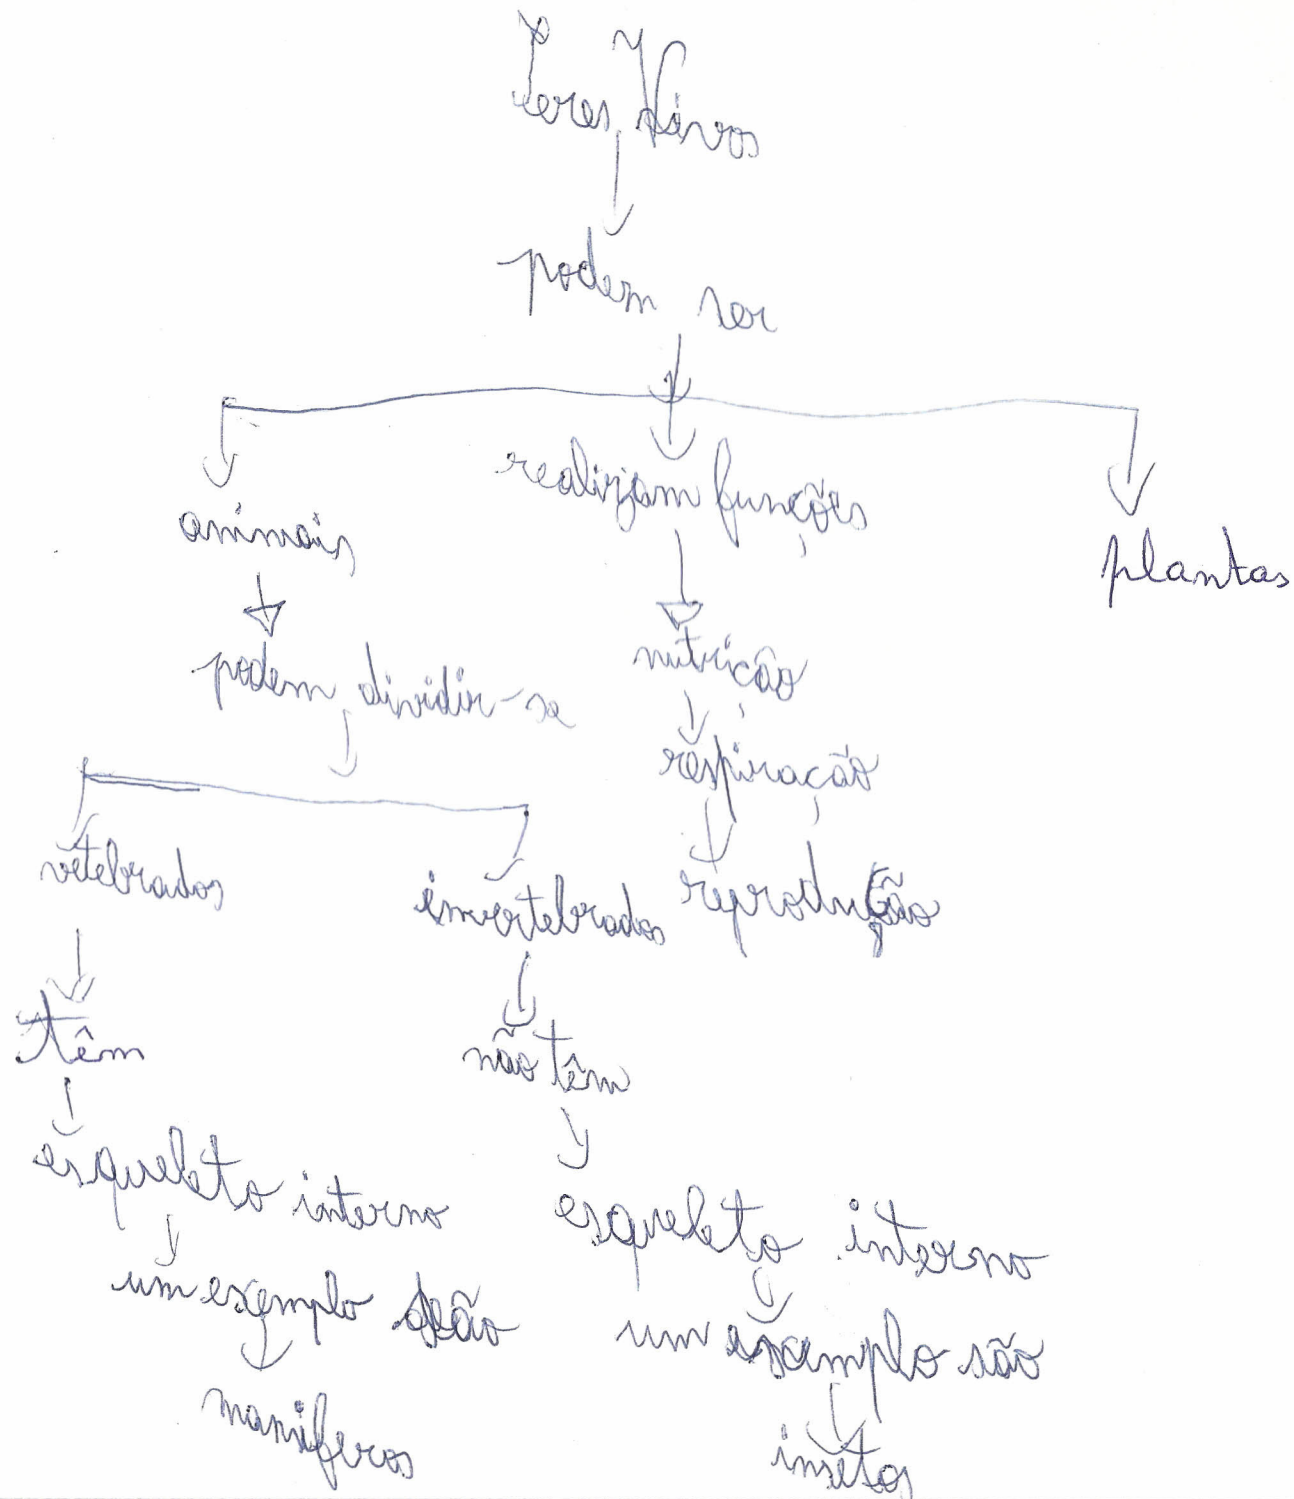 Seres Vivos
podem ser
animais realizam funções plantas
podem dividir-se nutrição
respiração
vetebrados invertebrados reprodução
têm não têm
esqueleto interno esqueleto interno
um exemplo são um exemplo são
maniferos insetos